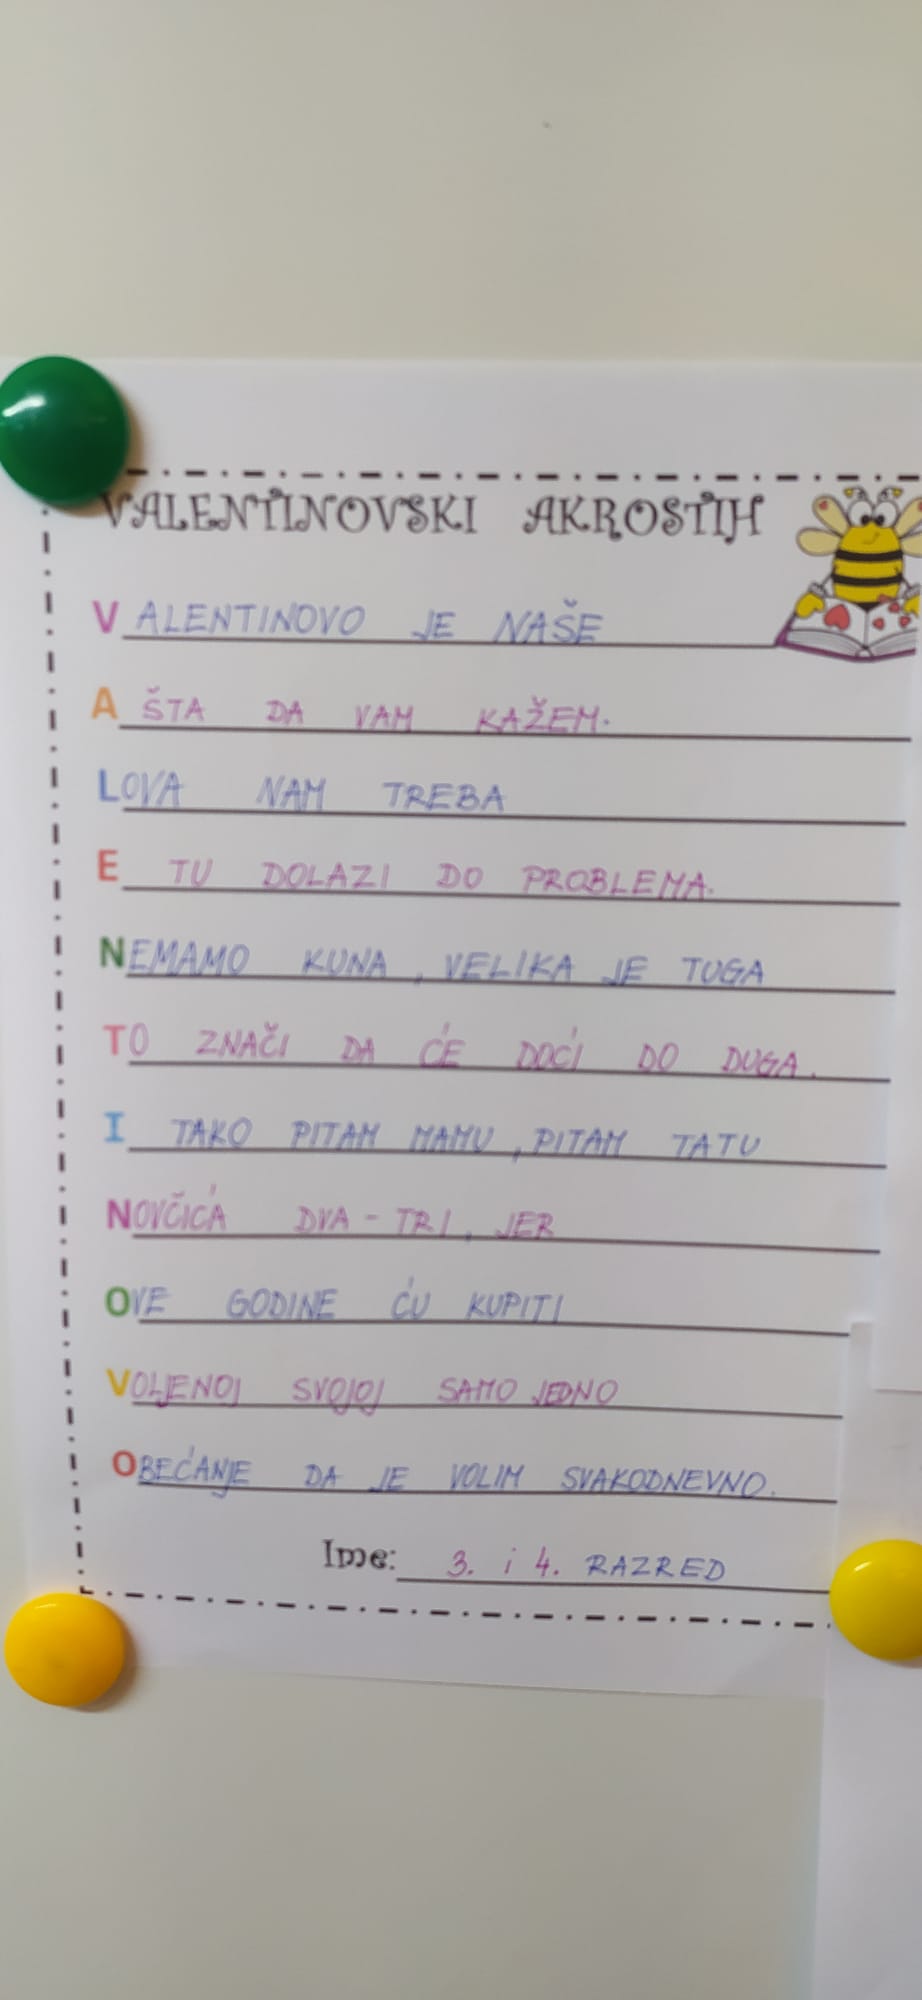 VALENTINOVSKI AKROSTIH
VALENTINOVO JE NAŠE
A ŠTA DA VAM KAŽEM.
LOVA NAM TREBA
E TU DOLAZI DO PROBLEMA.
NEMAMO KUNA, VELIKA JE TUGA
TO ZNAČI DA ĆE DOĆI DO DUGA.
I TAKO PITAM MAMU, PITAM TATU
NOVČIĆA DVA-TRI, JER
OVE GODINE ĆU KUPITI
VOLJENOJ SVOJOJ SAMO JEDNO
OBEĆANJE DA JE VOLIM SVAKODNEVNO.
Ime: 3. i 4. RAZRED